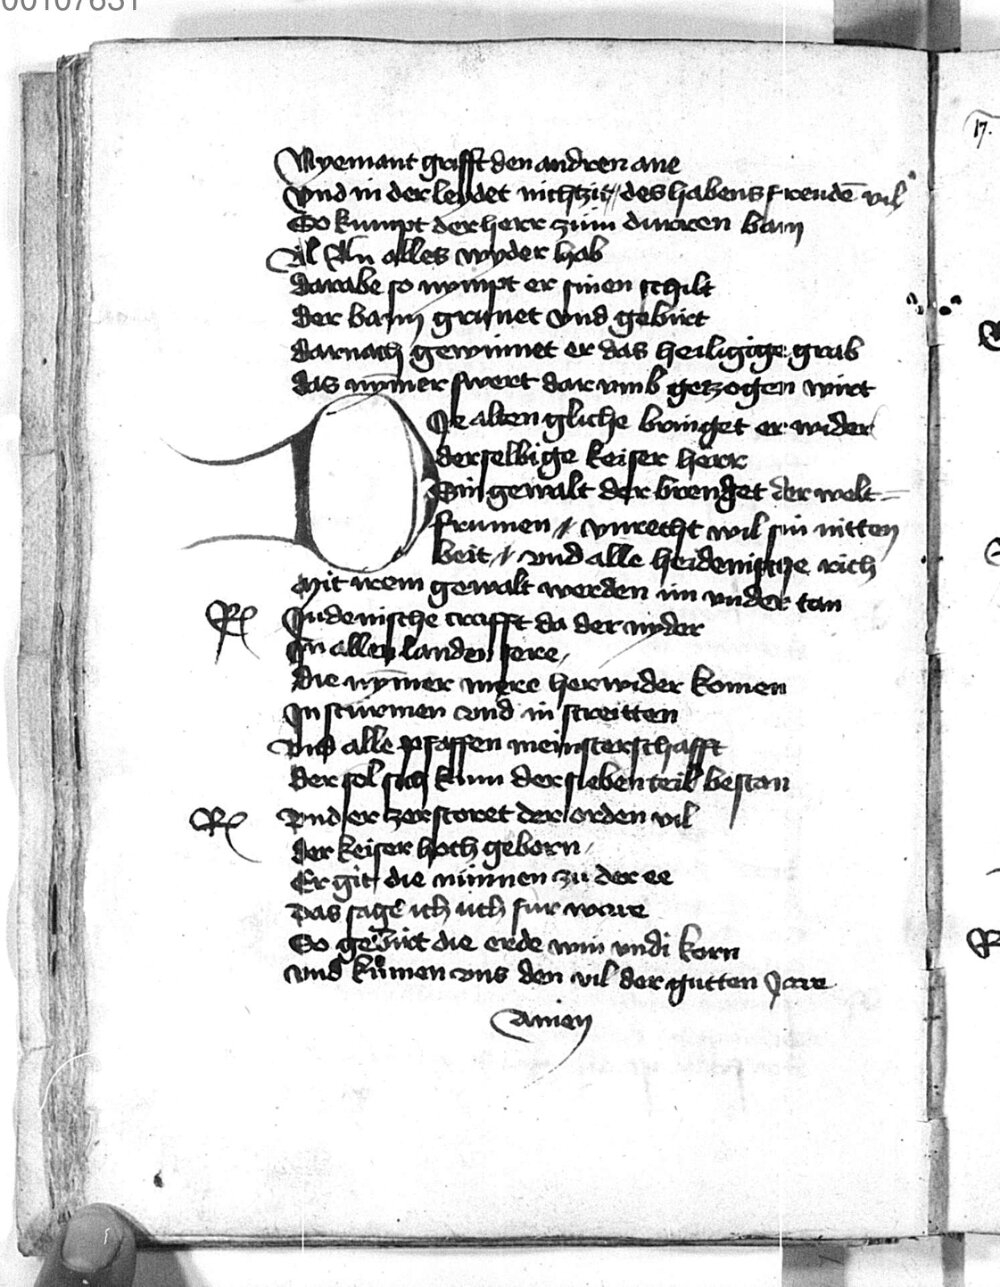 00107631
17.
Nyemant grifft den andren ane
Vnd in der lendet nichtzit des habens freudē vil
So kumpt der herr zům durren bam
Al An alles wyder hab
darabe so nympt er sinen schilt
der bam grunet vnd gebirt
darnach gewinnet er das heiligige grab
das nȳmer swert dar vmb getzogen wirt
De alten gliche bringet er wider
derselbige keiser herr
Sin gewalt der brenget der welt
frumen vnrecht wil sin nitten
beit vnd alle heidenische rich
Mit irem gewalt werden im vnder tan
Judenische crafft da der nyder
Jn allen landen sere
die nȳmer mere her wider komen
Jn stúrmen vnd in streitten
vnd alle pfaffen meinsterschafft
der sol sich kum der sieben teil bestan
vnd er zerstoret der orden vil
der keiser hoch geborn
Er git die núnnen zu der ee
Das sage ich uch fur ware
So gebirt die erde win vndi korn
vnd kūmen vns den vil der gutten Jare
Amen